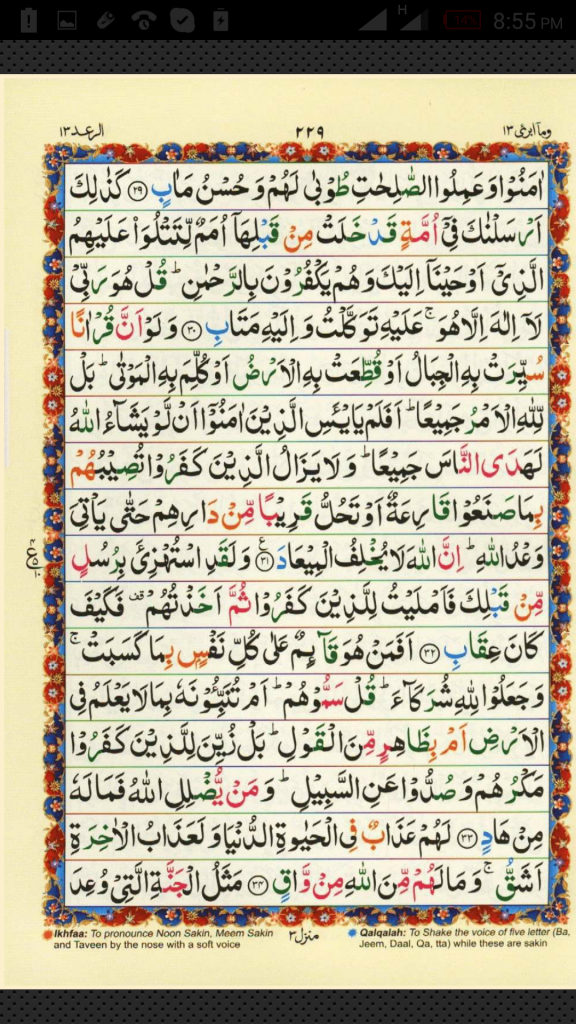 H 14% 8:55 PM
وماابرئ ١٣ ٢٢٩ الرعد ١٣
اٰمَنُوْا وَعَمِلُوا الصّٰلِحٰتِ طُوْبٰى لَهُمْ وَحُسْنُ مَاٰبٍ ﴿۲۹﴾ كَذٰلِكَ
اَرْسَلْنٰكَ فِىْۤ اُمَّةٍ قَدْ خَلَتْ مِنْ قَبْلِهَاۤ اُمَمٌ لِّتَتْلُوَا۟ عَلَيْهِمُ
الَّذِىْۤ اَوْحَيْنَاۤ اِلَيْكَ وَهُمْ يَكْفُرُوْنَ بِالرَّحْمٰنِ ؕ قُلْ هُوَ رَبِّىْ
لَاۤ اِلٰهَ اِلَّا هُوَ ۚ عَلَيْهِ تَوَكَّلْتُ وَاِلَيْهِ مَتَابِ ﴿۳۰﴾ وَلَوْ اَنَّ قُرْاٰنًا
سُيِّرَتْ بِهِ الْجِبَالُ اَوْ قُطِّعَتْ بِهِ الْاَرْضُ اَوْ كُلِّمَ بِهِ الْمَوْتٰى ؕ بَلْ
لِّلّٰهِ الْاَمْرُ جَمِيْعًا ؕ اَفَلَمْ يَايْـَٔسِ الَّذِيْنَ اٰمَنُوْۤا اَنْ لَّوْ يَشَآءُ اللّٰهُ
لَهَدَى النَّاسَ جَمِيْعًا ؕ وَلَا يَزَالُ الَّذِيْنَ كَفَرُوْا تُصِيْبُهُمْ
بِمَا صَنَعُوْا قَارِعَةٌ اَوْ تَحُلُّ قَرِيْبًا مِّنْ دَارِهِمْ حَتّٰى يَاْتِىَ
وَعْدُ اللّٰهِ ؕ اِنَّ اللّٰهَ لَا يُخْلِفُ الْمِيْعَادَ ﴿۳۱﴾ ع وَلَقَدِ اسْتُهْزِئَ بِرُسُلٍ
مِّنْ قَبْلِكَ فَاَمْلَيْتُ لِلَّذِيْنَ كَفَرُوْا ثُمَّ اَخَذْتُهُمْ قف فَكَيْفَ
كَانَ عِقَابِ ﴿۳۲﴾ اَفَمَنْ هُوَ قَآئِمٌ عَلٰى كُلِّ نَفْسٍۭ بِمَا كَسَبَتْ ۚ
وَجَعَلُوْا لِلّٰهِ شُرَكَآءَ ؕ قُلْ سَمُّوْهُمْ ؕ اَمْ تُنَبِّـُٔوْنَهٗ بِمَا لَا يَعْلَمُ فِى
الْاَرْضِ اَمْ بِظَاهِرٍ مِّنَ الْقَوْلِ ؕ بَلْ زُيِّنَ لِلَّذِيْنَ كَفَرُوْا
مَكْرُهُمْ وَصُدُّوْا عَنِ السَّبِيْلِ ؕ وَمَنْ يُّضْلِلِ اللّٰهُ فَمَا لَهٗ
مِنْ هَادٍ ﴿۳۳﴾ لَهُمْ عَذَابٌ فِى الْحَيٰوةِ الدُّنْيَا وَلَعَذَابُ الْاٰخِرَةِ
اَشَقُّ ۚ وَمَا لَهُمْ مِّنَ اللّٰهِ مِنْ وَّاقٍ ﴿۳۴﴾ مَثَلُ الْجَنَّةِ الَّتِىْ وُعِدَ
منزل ٣
Ikhfaa: To pronounce Noon Sakin, Meem Sakin
and Taveen by the nose with a soft voice
Qalqalah: To Shake the voice of five letter (Ba,
Jeem, Daal, Qa, tta) while these are sakin